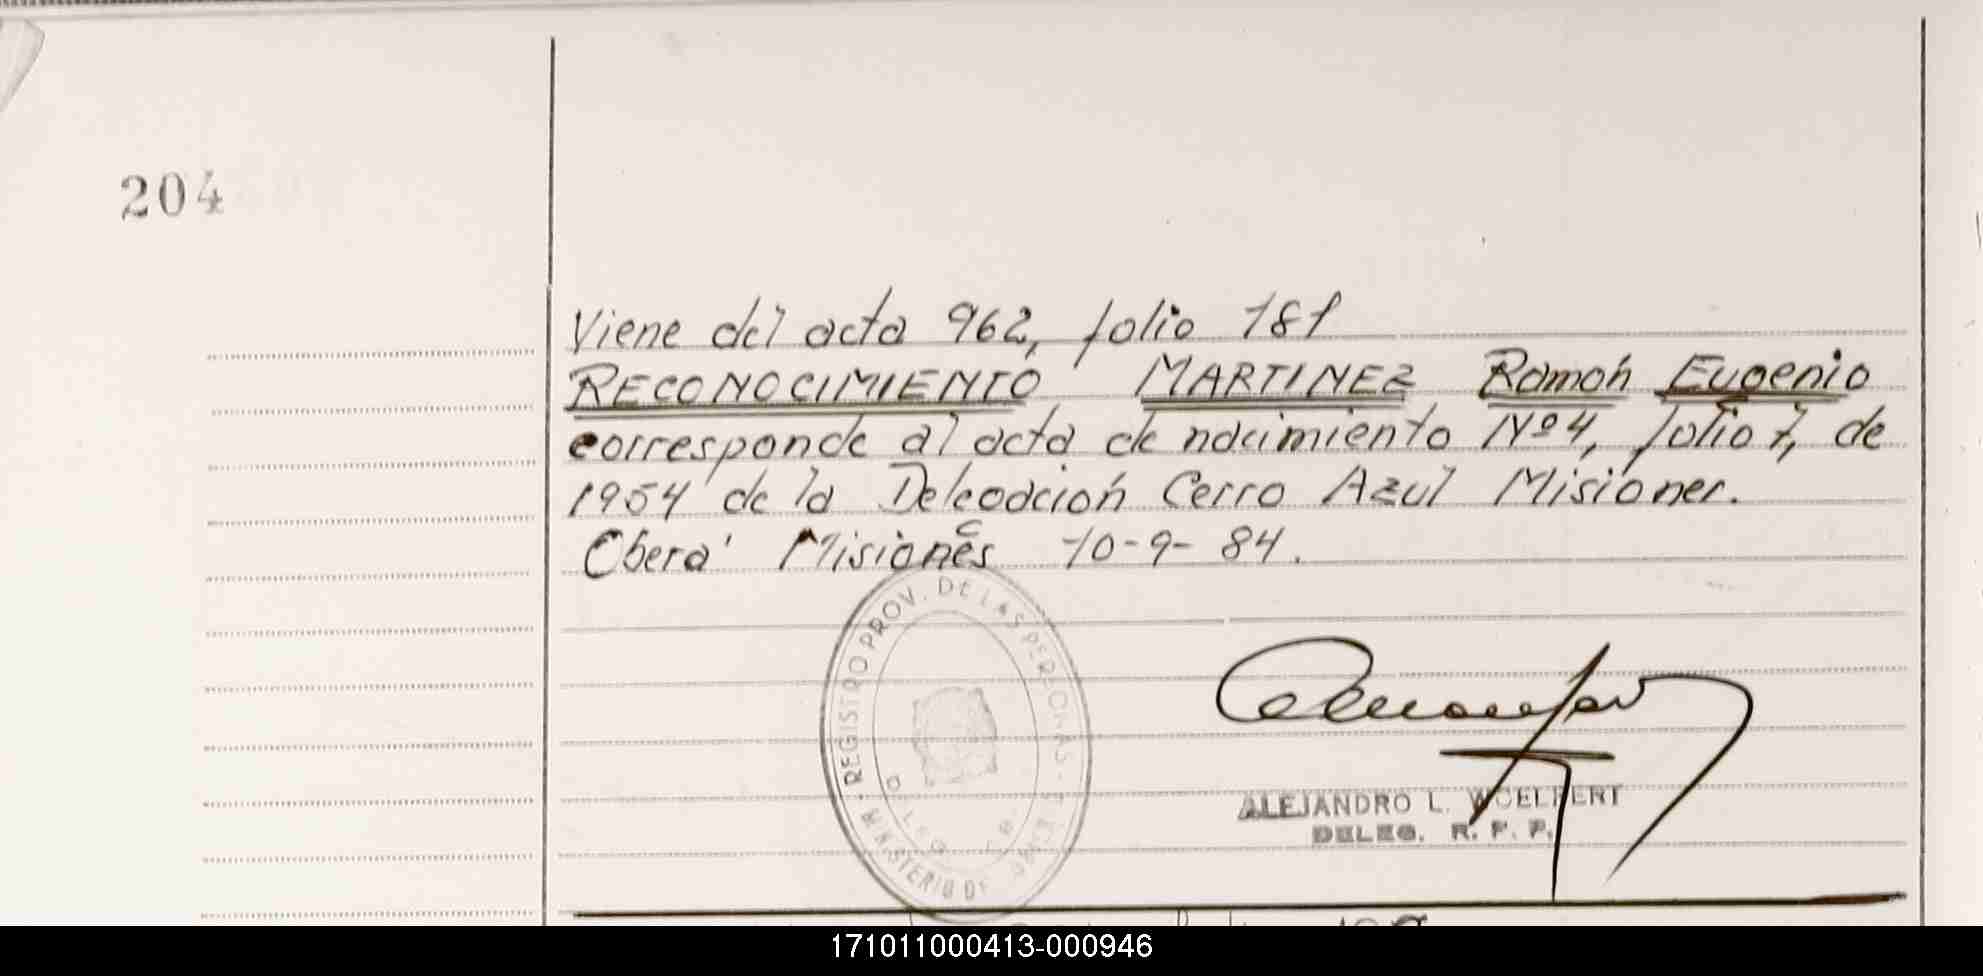 204
Viene del acta 962, folio 181
RECONOCIMIENTO MARTINEZ Ramón Eugenio
corresponde al acta de nacimiento Nº4, folio 7, de
1954 de la Delegación Cerro Azul Misiones.
Oberá Misiones 10-9-84.
REGISTRO PROV. DE LAS PERSONAS
MINISTERIO DE
ALEJANDRO L. WOELFERT
DELEG. R. P. P.
171011000413-000946